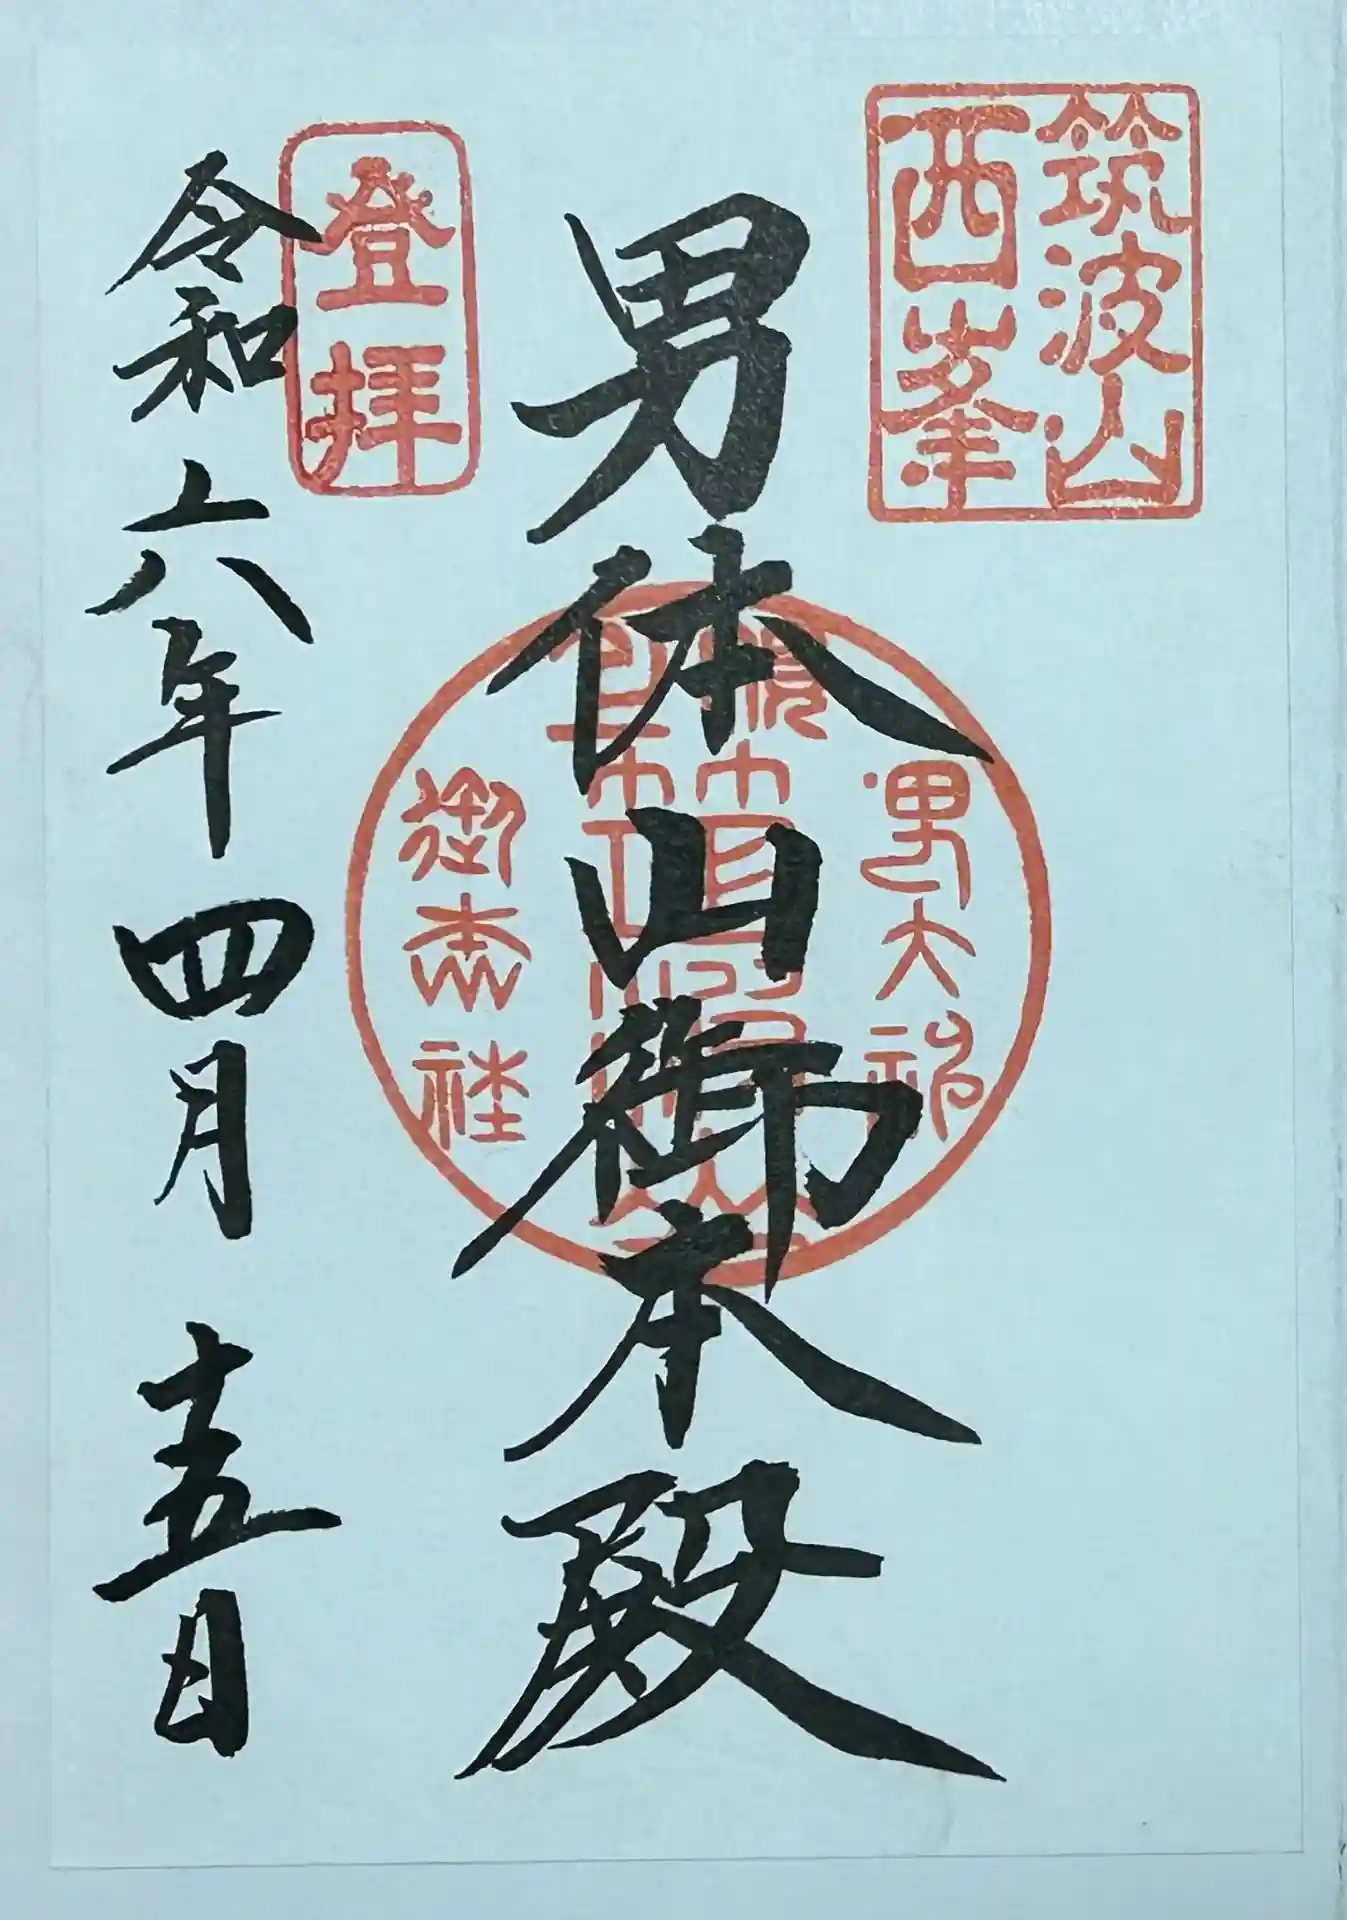 筑波山
西峯
男体山御本殿
登拝
令和六年四月十五日
御本社